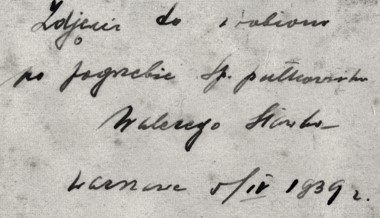 Zdjęcie to zrobione
po pogrzebie śp. pułkownika
Walerego Sławka
Warszawa 5/IV 1939 r.